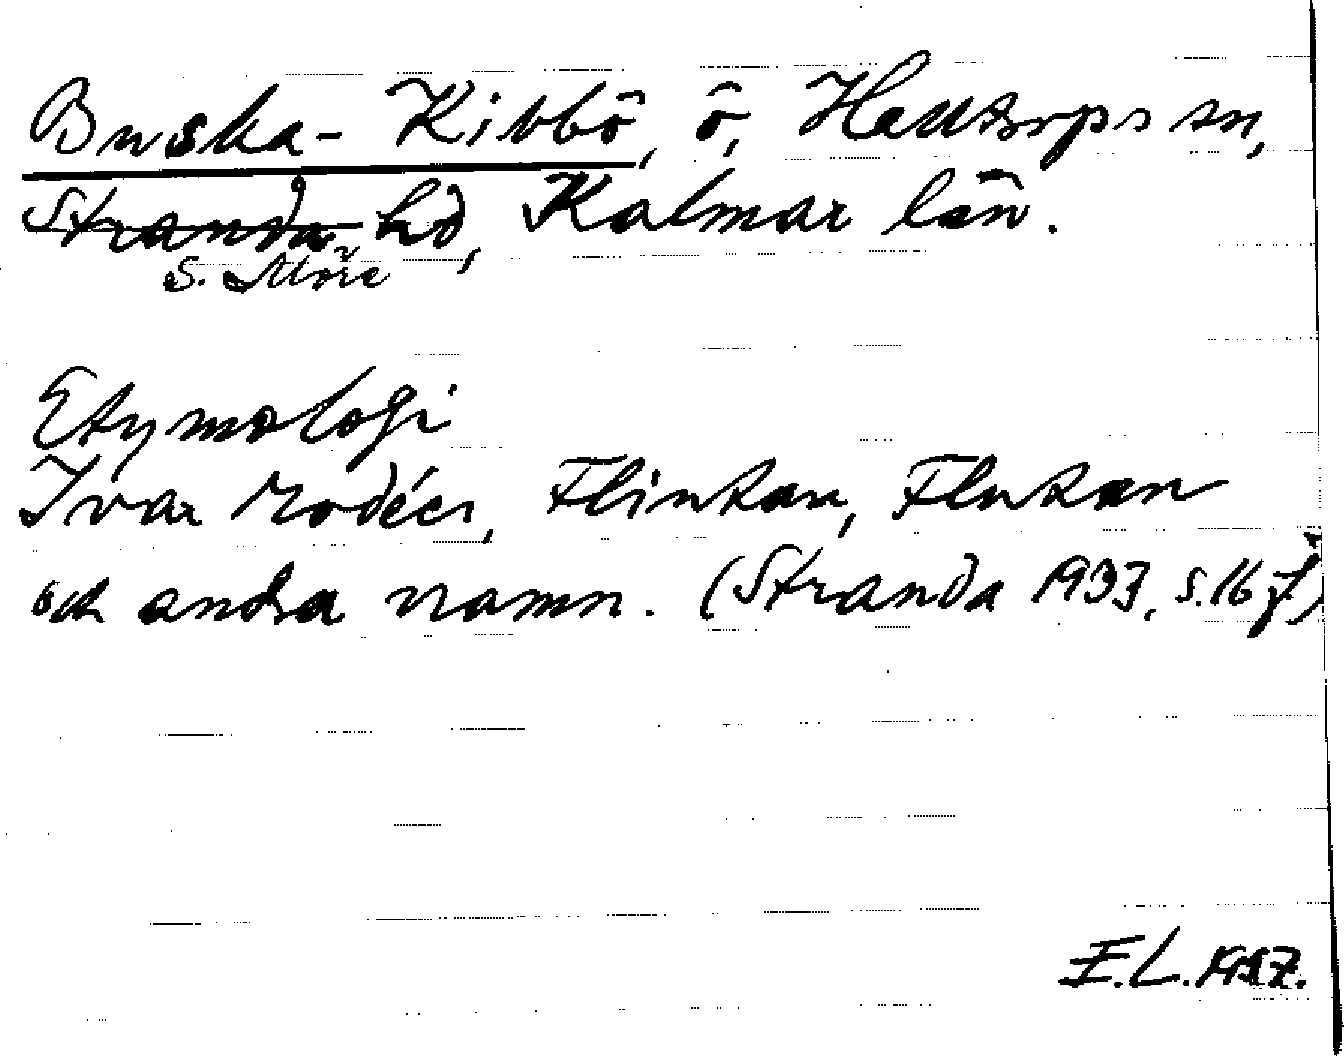 Buska-Kibbö, ö, Halltorps sn,
Stranda hd, Kalmar län.
S. Möre
Etymologi
Ivar Modéer, Flinkan, Flukan
och andra namn. (Stranda 1933, s. 16 f)
E.L.